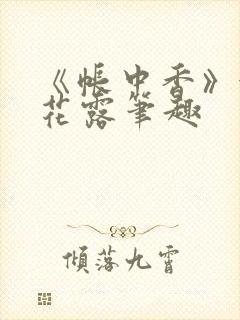 《帐中香》
花露笔趣
倾落九霄